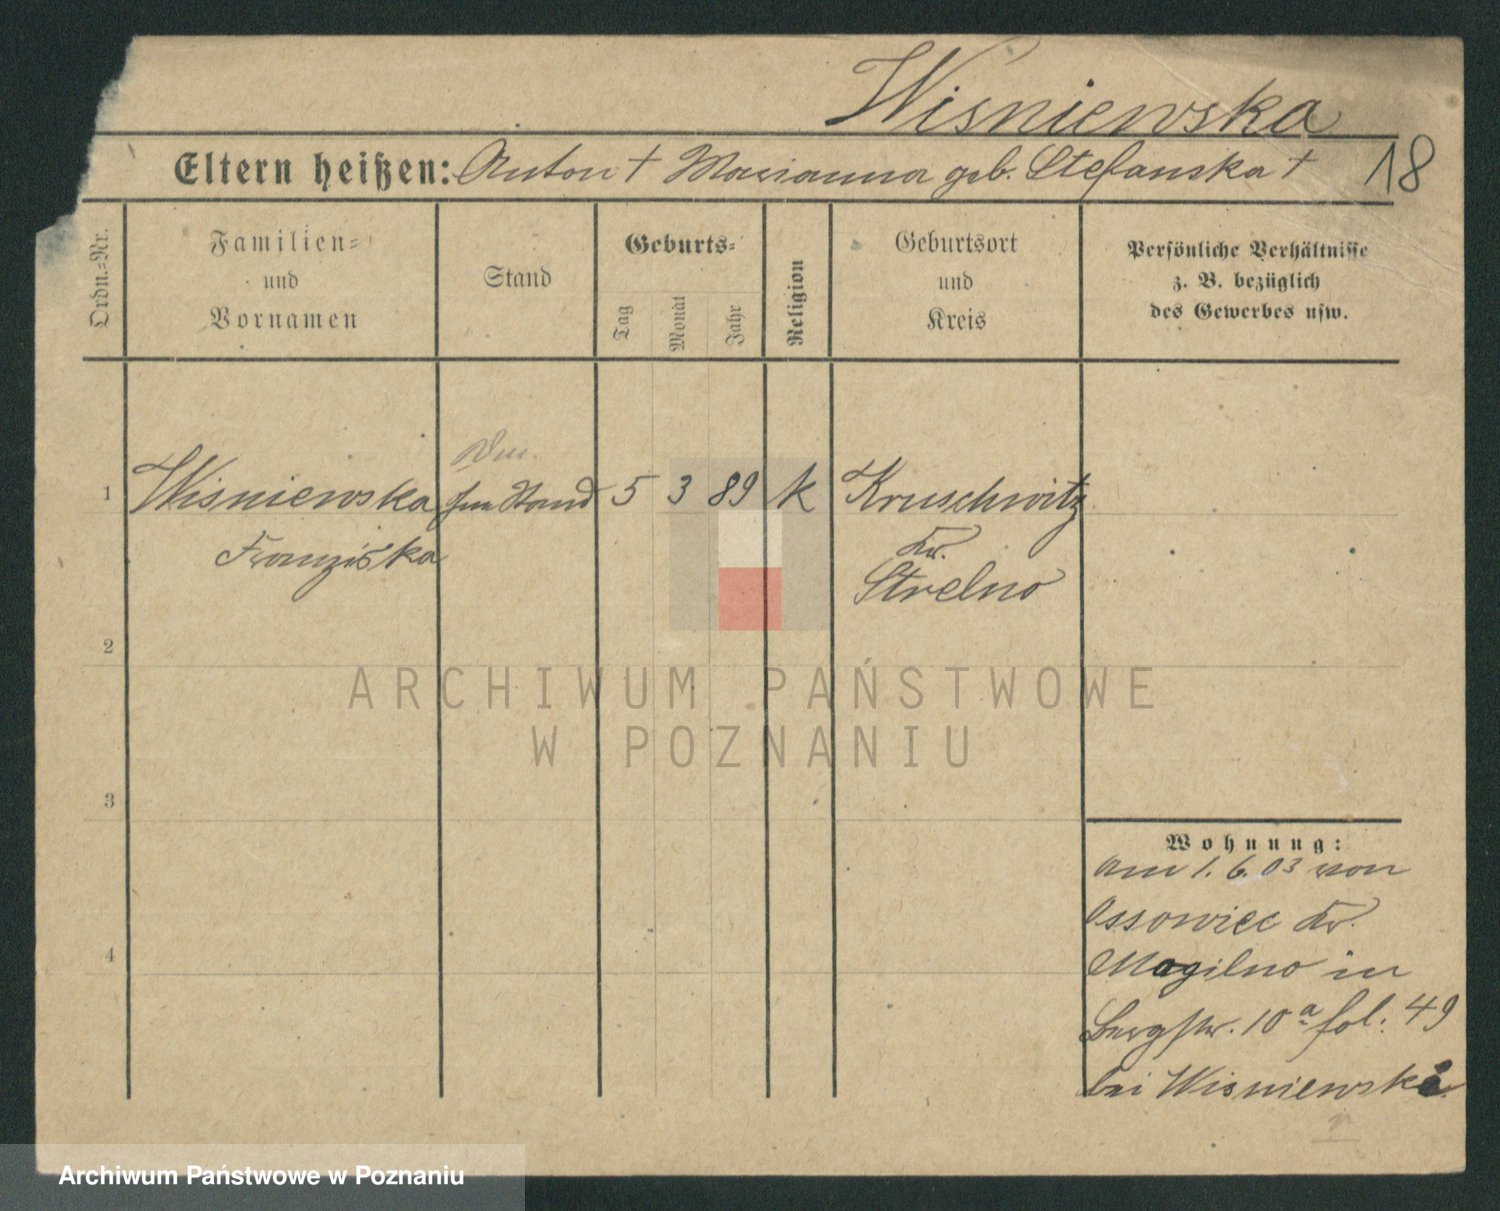 Wisniewska
Eltern heißen: Anton † Marianna geb. Stefanska †
18
Ordn.=Nr.
Familien=
und
Vornamen
Stand
Geburts=
Tag
Monat
Jahr
Religion
Geburtsort
und
Kreis
Persönliche Verhältnisse
z. B. bezüglich
des Gewerbes usw.
1 Wisniewska Stand 5 3 89 k Kruschwitz
Franziska
Kr.
Strelno
2
3
4
Wohnung:
am 1. 6. 03 von
Ossowiec Kr.
Mogilno in
Bergstr. 10a fol: 49
bei Wisniewski
ARCHIWUM PAŃSTWOWE
W POZNANIU
Archiwum Państwowe w Poznaniu